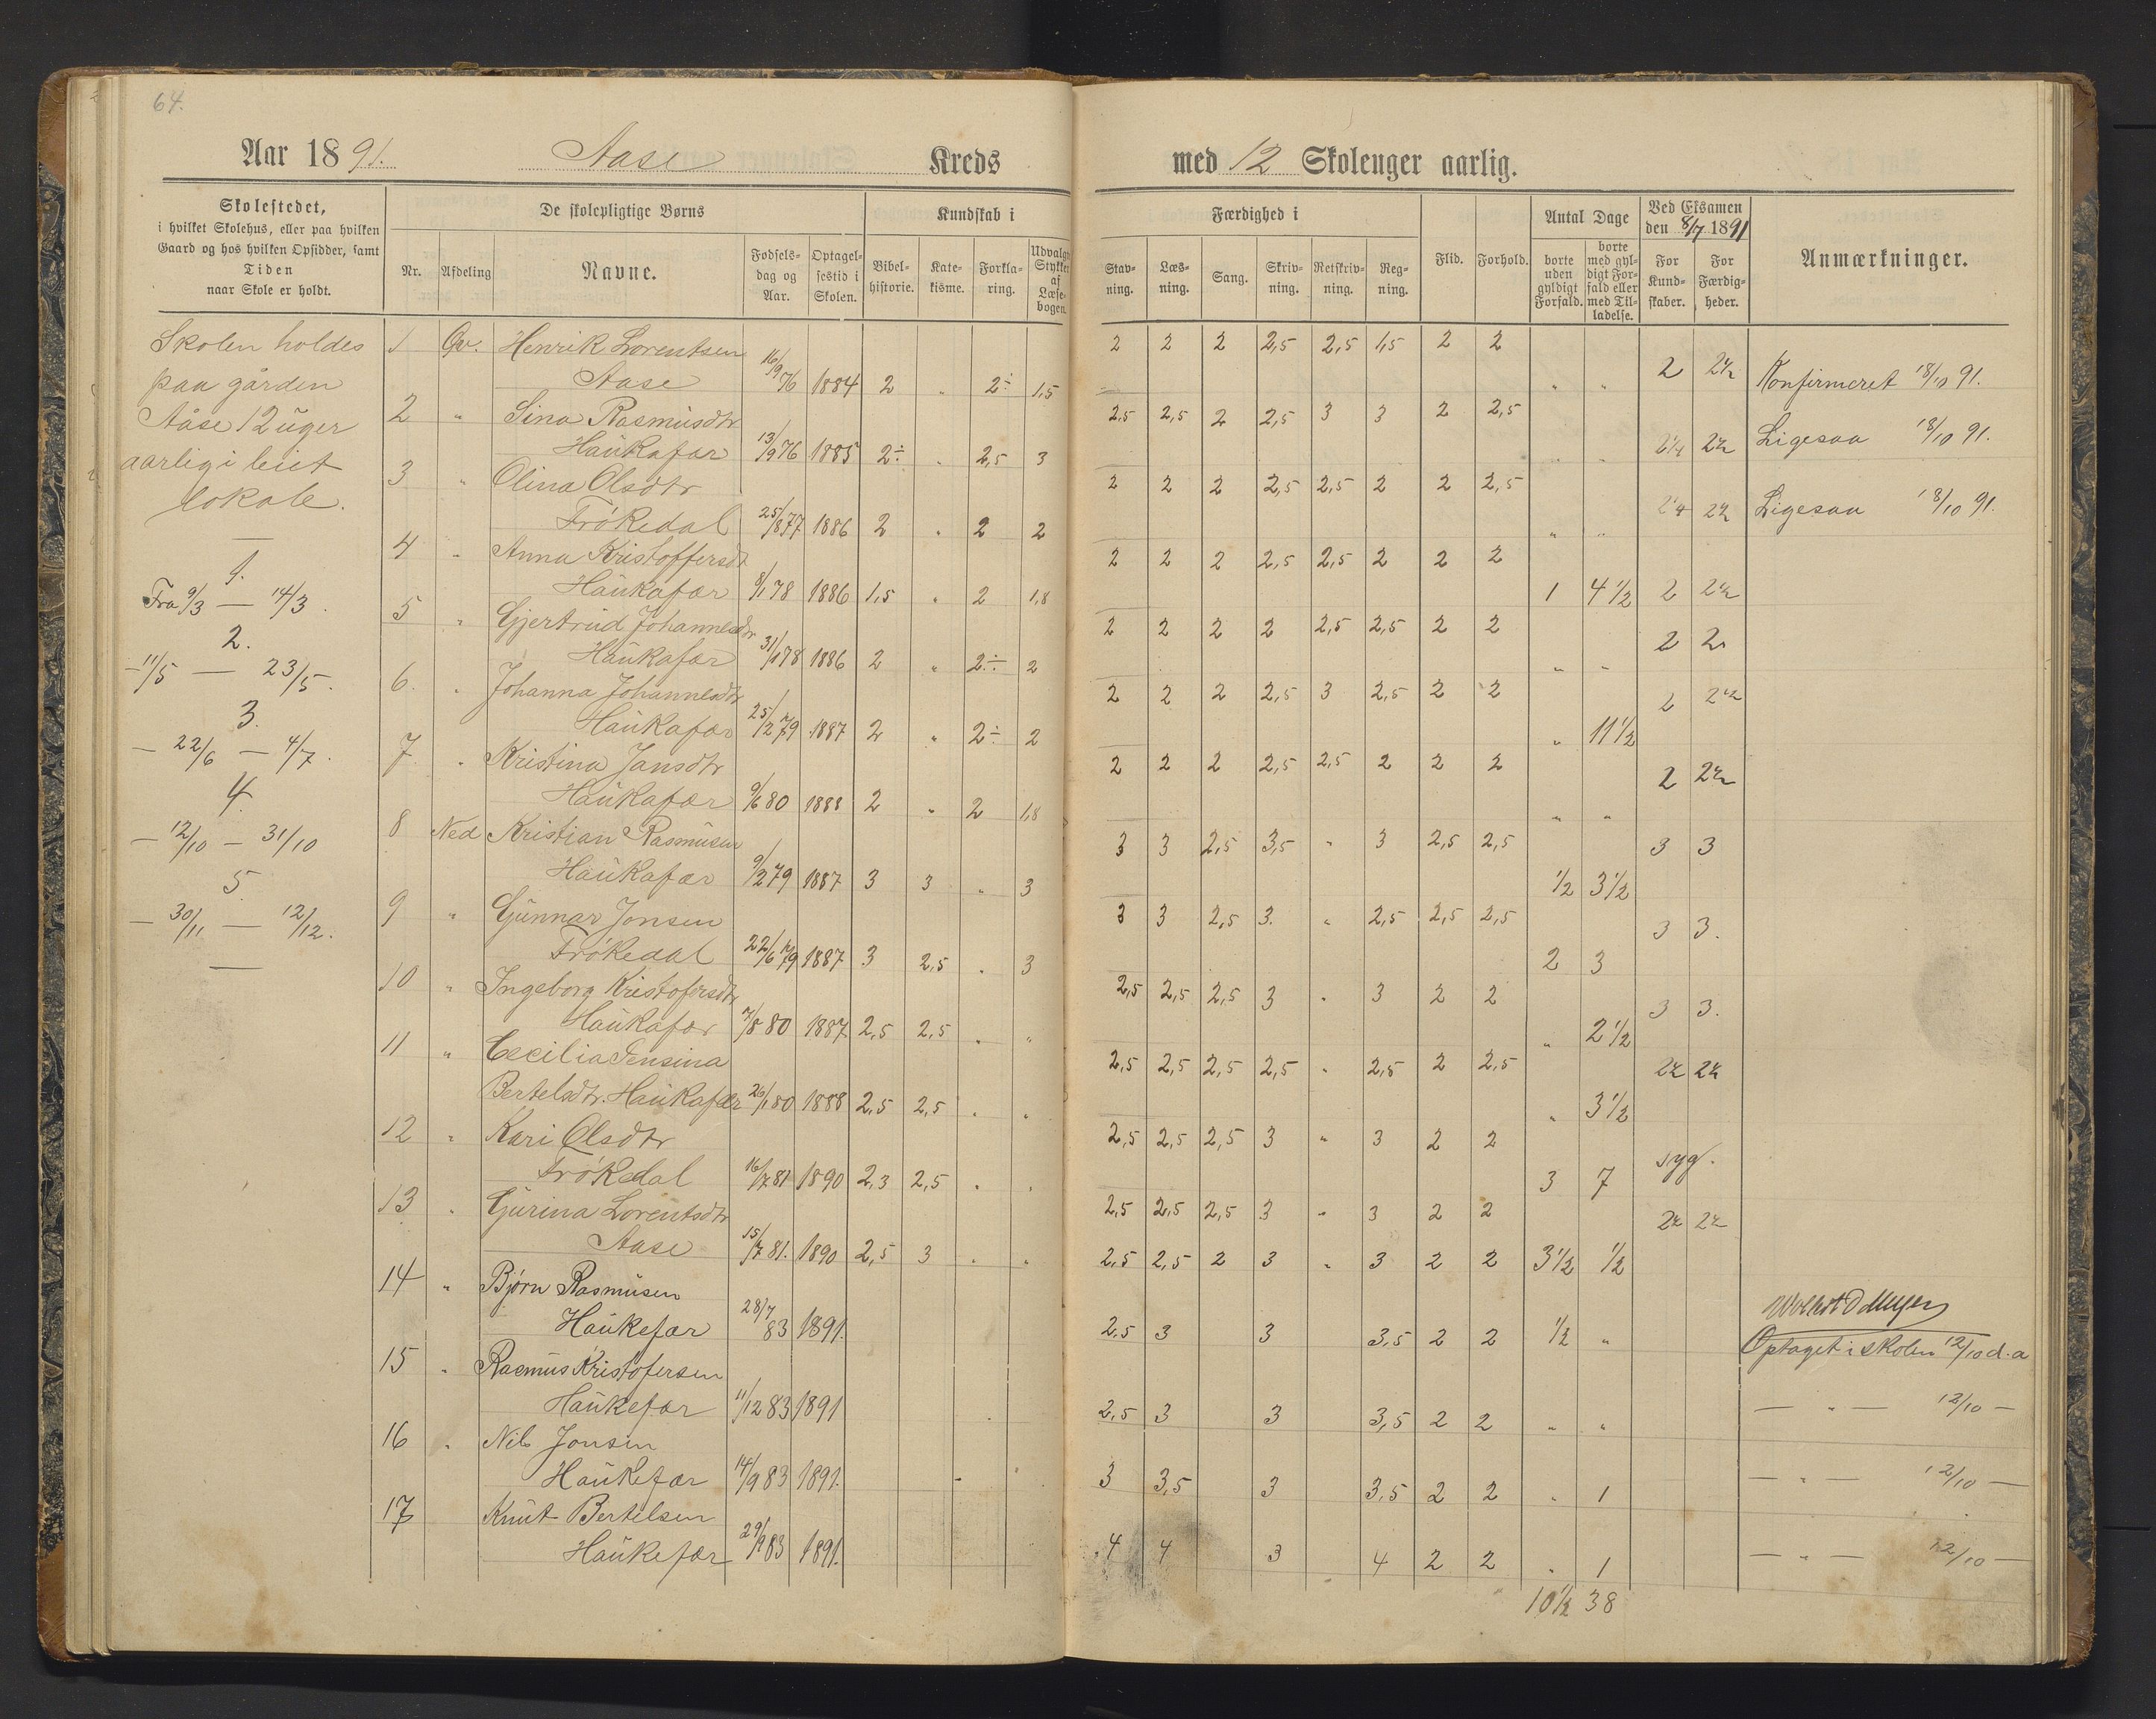 64.
Aar 1891. Aase Kreds med 12 Skoleuger aarlig.
Skolestedet,
i hvilket Skolehus, eller paa hvilken
Gaard og hos hvilken Opsidder, samt
Tiden
naar Skole er holdt.
De skolepligtige Børns
Nr. Afdeling Navne. Fødsels-dag og Aar. Optagel-sestid i Skolen.
Kundskab i
Bibel-historie. Kate-kisme. Forkla-ring. Udvalgte Stykker af Læse-bogen.
Færdighed i
Stav-ning. Læs-ning. Sang. Skriv-ning. Retskriv-ning. Reg-ning.
Flid. Forhold.
Antal Dage
borte uden gyldigt Forfald. borte med gyl-digt For-fald eller med Til-ladelse.
Ved Eksamen
den 8/7 1891
For Kund-skaber. For Færdig-heder.
Anmærkninger.
Skolen holdes
paa gården
Aåse 12 uger
aarlig i leiet
lokale.
1.
Fra 9/3 — 14/3.
2.
— 11/5 — 23/5.
3.
— 22/6 — 4/7.
4.
— 12/10 — 31/10
5.
— 30/11 — 12/12.
1 Øv. Henrik Lorentsen 2 2 2 2,5 2,5 1,5 2 2
Aase 16/9 76 1884 2 " 2÷ 1,5 " " 2 2½ Konfirmeret 18/10 91.
2 " Sina Rasmusdtr 2,5 2,5 2 2,5 3 3 2 2,5
Haukafær 13/9 76 1885 2÷ " 2,5 3 " " 2¼ 2½ Ligesaa 18/10 91.
3 " Olina Olsdtr 2 2 2 2,5 2,5 2 2 2,5
Frøkedal 25/8 77 1886 2 " 2 2 " " 2¼ 2½ Ligesaa 18/10 91.
4 " Anna Kristoffersdt 2 2 2 2,5 2,5 2 2 2
Haukafær 8/1 78 1886 1,5 " 2 1,8 1 4½ 2 2½
5 " Gjertrud Johannesdtr 2 2 2 2 2,5 2,5 2 2
Haukafær 31/1 78 1886 2 " 2÷ 2 " " 2 2
6. " Johanna Johannesdtr 2 2 2 2,5 3 2,5 2 2
Haukafær 25/2 79 1887 2 " 2÷ 2 " 11½ 2 2½
7 " Kristina Jansdtr 2 2 2 2,5 2,5 2 2 2
Haukafær 9/6 80 1888 2 " 2 1,8 " " 2 2½
8 Ned Kristian Rasmusen 3 3 2,5 3,5 " 3 2,5 2,5 3 3
Haukafær 9/2 79 1887 3 3 " 3 ½ 3½
9 " Gunnar Jonsen 3 3 2,5 3. " 2,5 2,5 2,5 3 3.
Frøkedal 22/6 79 1887 3 2,5 " 3 2 3
10 " Ingeborg Kristofersdtr 2,5 2,5 2,5 3 " 3 2 2 3 3.
Haukafær 7/8 80 1887. 2,5 2,5 " " " 2½
11 " Cecilia Jensina 2,5 2,5 2,5 2,5 " 2,5 2 2,5 2½ 2½
Bertelsdtr. Haukafær 26/1 80 1888 2,5 2,5 " " " 3½
12 " Kari Olsdtr 2,5 2,5 2,5 3 " 3 2 2 syg.
Frøkedal 16/7 81 1890 2,3 2,5 " " 3 7
13 " Gurina Lorentsdtr 2,5 2,5 2,5 3 " 3 2 2 2½ 2½
Aase 15/7 81. 1890 2,5 3 " " 2,5 2,5 2 3 " 3 2 2 3½ ½
14 " Bjørn Rasmusen
Haukefær 28/7 83 1891. 2,5 3 3 3,5 2 2 ½ " Optaget i skolen 12/10 d.a
15 " Rasmus Kristofersen
Haukefær 11/12 83 1891 2,5 3 3 3,5 2 2 " " — " — 12/10 —
16 " Nils Jonsen
Haukefær 14/9 83 1891. 3 3,5 3 3,5 2 2 " 1 — " — 12/10 —
17 Knut Bertelsen
Haukefær 29/9 83 1891. 4 4 3 4 2 2 " 1 — " — 12/10 —
10½ 38